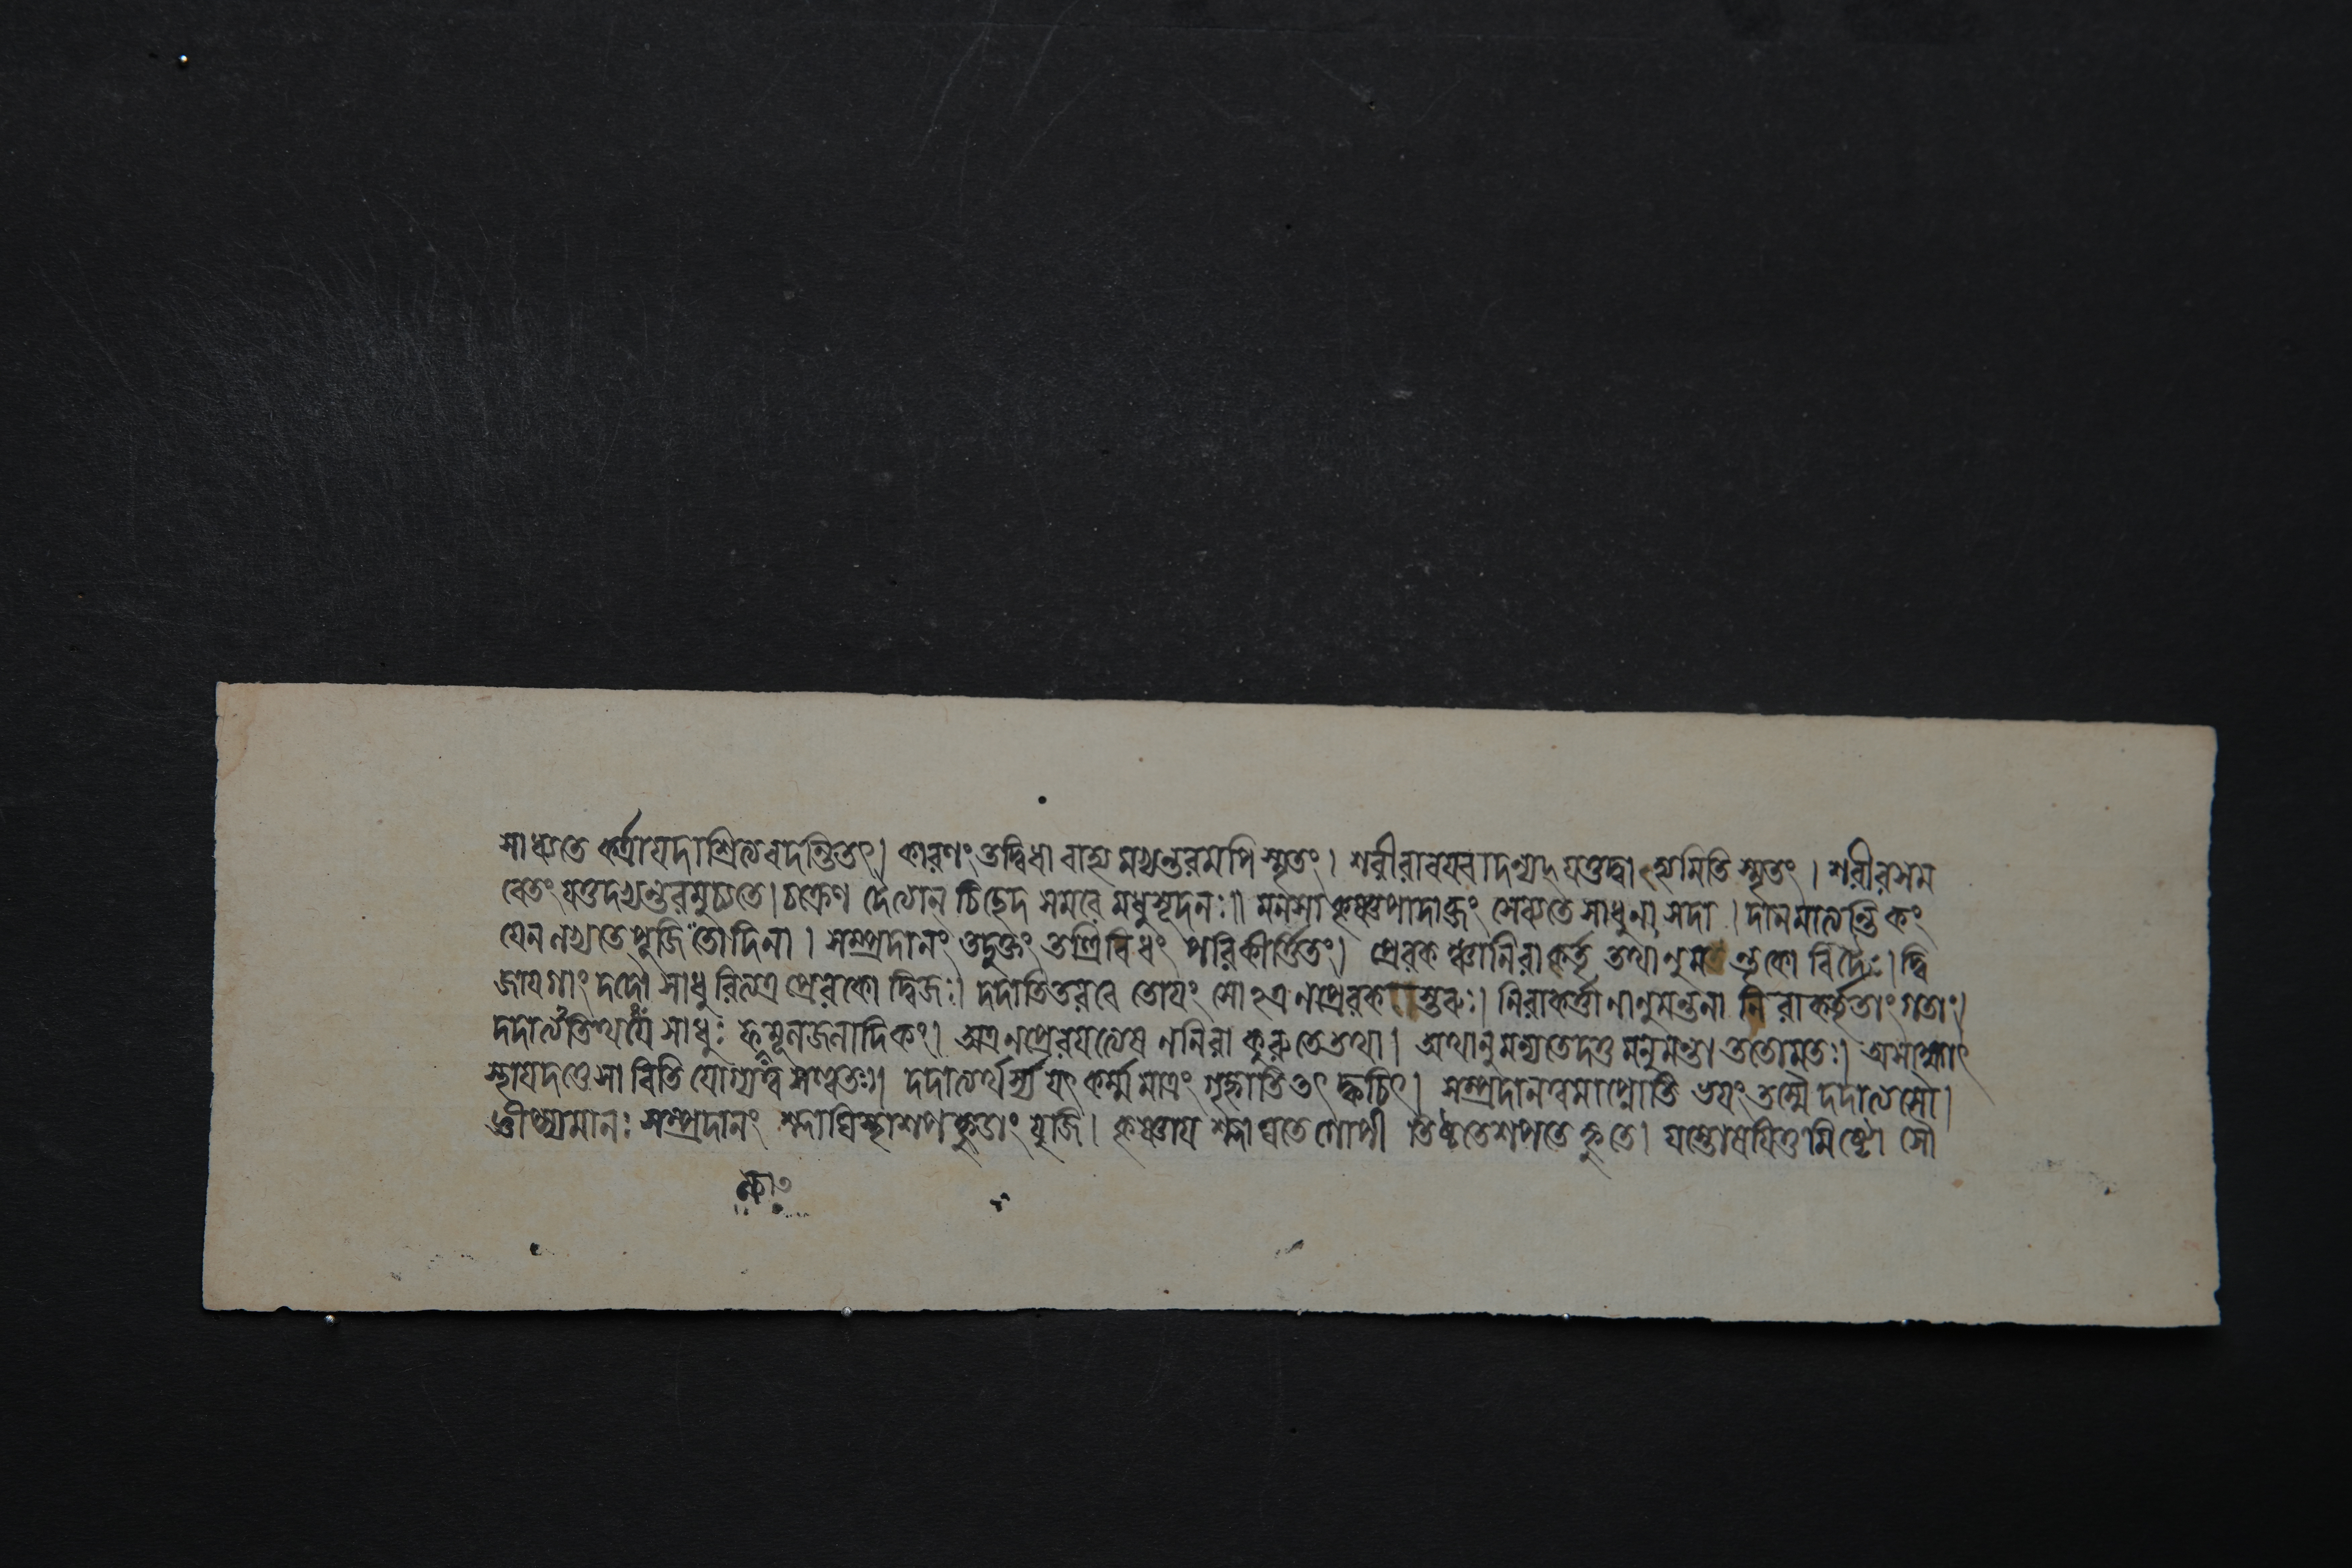 সাধ্যতে কর্ত্রা যদাশ্রিত্য বদন্তি তৎ। কারণং তদ্দ্বিধা বাহ্য মভ্যন্তরমপি স্মৃতং। শরীরাবয়বাদন্যদ্ যত্তদ্বাহ্যমিতি স্মৃতং। শরীরসম
বেতং যত্তদভ্যন্তরমুচ্যতে। চক্রেণ দৈত্যান চিচ্ছেদ সমরে মধুসূদনঃ॥ মনসা কৃষ্ণপাদাব্জং সেব্যতে সাধুনা সদা। দানমাত্যন্তিকং
যেন লভ্যতে পূজিতোদিনা। সম্প্রদানং তদুক্তং তত্রিবিধং পরিকীর্ত্তিতং। প্রেরকশ্চানিরাকর্তৃ তথানুম বিদৈঃ। দ্বি
জায গাং দদৌ সাধুরিত্যত্র প্রেরকো দ্বিজঃ। দদাতি তরবে তোয়ং সোঽত্র ন প্রেরক স্তরুঃ। নিরাকর্ত্তা নানুমন্তা না নিরাকর্তৃতাং গতঃ।
দদাত্যতিথযে সাধুঃ ফলমূলজলাদিকং। অত্র ন প্রেরযত্যেষ ন নিরাকুরুতে তথা। অথানুমন্যতে দত্ত মনুমন্তা ততো মতঃ। অমাত্মাৎ
স্থাযদণ্ডেসাবিতি যোগ্যত্ব সণ্বতঃ। দদাত্যর্থ যৎ কর্ম্ম মাত্রং গৃহ্লাতি তৎ ক্বচিৎ। সম্প্রদানত্বমাপ্নোতি ভযং তস্মৈ দদাত্যসৌ।
জ্ঞীপ্স্যমানঃ সম্প্রদানং শ্লাঘিস্থাশপহ্নুঙাং যুজি। কৃষ্ণায শ্লাঘতে গোপী তিষ্ঠতে শপতে হ্নুতে। যস্তোষযিতুমিষ্টো সৌ